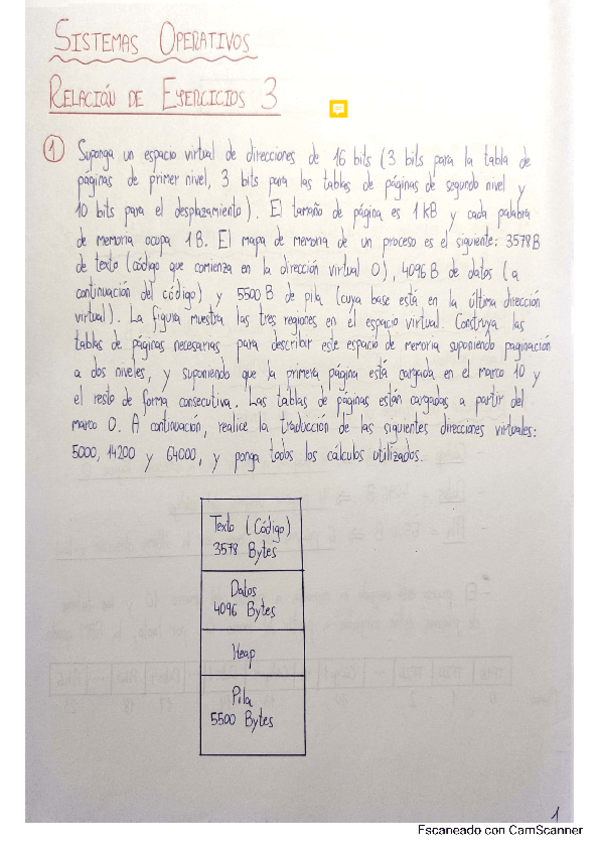 SISTEMAS OPERATIVOS
RELACIÓN DE EJERCICIOS 3
1 Suponga un espacio virtual de direcciones de 16 bits (3 bits para la tabla de
páginas de primer nivel, 3 bits para las tablas de páginas de segundo nivel y
10 bits para el desplazamiento). El tamaño de página es 1 kB y cada palabra
de memoria ocupa 1 B. El mapa de memoria de un proceso es el siguiente: 3578 B
de texto (código que comienza en la dirección virtual 0), 4096 B de datos (a
continuación del código) y 5500 B de pila (cuya base está en la última dirección
virtual). La figura muestra las tres regiones en el espacio virtual. Construya las
tablas de páginas necesarias para describir este espacio de memoria suponiendo paginación
a dos niveles, y suponiendo que la primera página está cargada en el marco 10 y
el resto de forma consecutiva. Las tablas de páginas están cargadas a partir del
marco 0. A continuación, realice la traducción de las siguientes direcciones virtuales:
5000, 14200 y 64000, y ponga todos los cálculos utilizados.
Texto (Código)
3578 Bytes
Datos
4096 Bytes
Heap
Pila
5500 Bytes
1
Escaneado con CamScanner